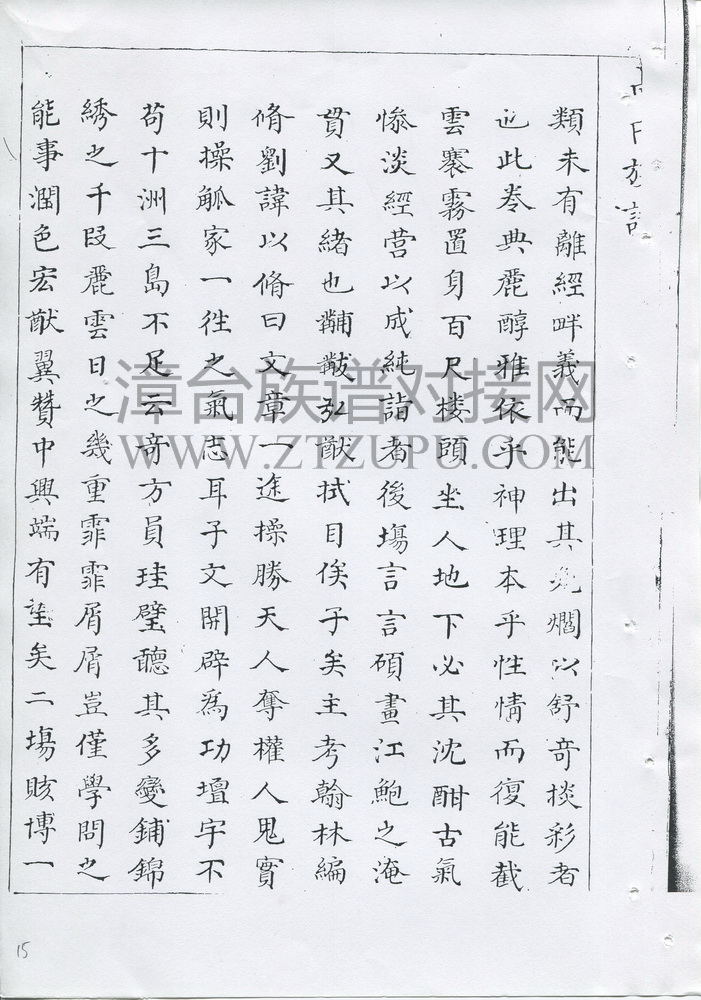 類未有離經畔義而能出其光爛以舒奇掞彩者
也此卷典麗醇雅依乎神理本乎性情而復能截
雲褰霧置身百尺楼頭坐人地下必其沈酣古氣
惨淡經营以成純詣者後塲言言碩畫江鮑之淹
貫又其緒也黼黻弘猷拭目俟子矣主考翰林編
脩劉諱以脩曰文章一途操勝天人奪權人鬼實
則操觚家一徃之氣志耳子文開辟爲功壇宇不
苟十洲三島不足云竒方員珪璧聽其多變鋪錦
綉之千段麗雲日之幾重霏霏屑屑豈僅學問之
能事潤色宏猷翼贊中興端有望矣二塲賅博一
漳台族谱对接网
WWW.ZTZUPU.COM
15